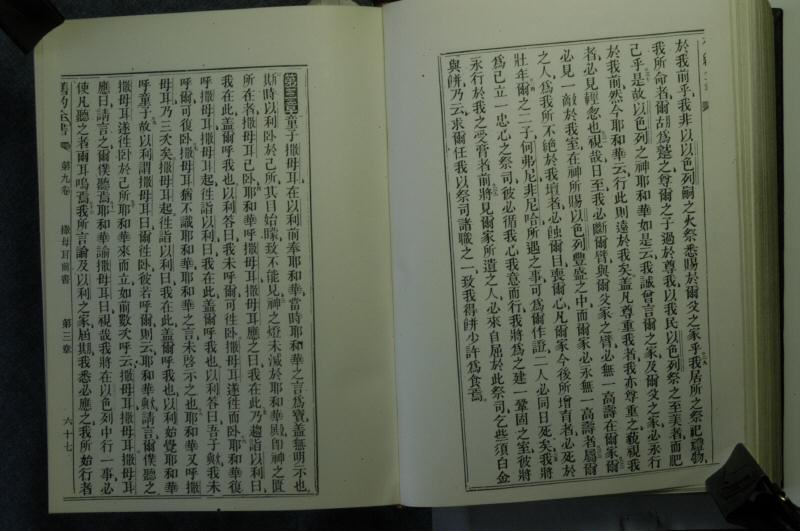 於我前乎我非以以色列嗣之火祭悉賜於爾父之家乎我居所之祭祀禮物
我所命者爾胡爲蹴之尊爾之子過於尊我以我民以色列祭之至美者而肥
己乎是故以色列之神耶和華如是云我誠曾言爾之家及爾父之家必永行
於我前然今耶和華云行此則遠於我矣蓋凡尊重我者我亦尊重之藐視我
者必見輕忽也視哉日至我必斷爾臂與爾父家之臂必無一高壽在爾家爾
必見一敵於我室在神所賜以色列豐盛之中而爾家必永無一高壽者屬爾
之人爲我所不絕於我壇者必蝕爾目喪爾心凡爾家今後所增育者必死於
壯年爾之二子何弗尼非尼哈所遇之事可爲爾作證二人必同日死矣我將
爲己立一忠心之祭司彼必循我心我意而行我將爲之建一鞏固之室彼將
永行於我之受膏者前將見爾家所遺之人必來自屈於此祭司之些須白金
與餅乃云求爾任我以祭司諸職之一致我得餅少許爲食焉
第三章童子撒母耳在以利前奉耶和華當時耶和華之言爲寶蓋無明示也
斯時以利卧於己所其目始矇致不能見神之燈未滅於耶和華殿卽神之匱
所在者撒母耳已卧耶和華呼撒母耳撒母耳應之曰我在此乃趨詣以利曰
我在此蓋爾呼我也以利答曰我未呼爾可徃卧撒母耳遂徃卧耶和華復
呼撒母耳撒母耳起徃詣以利曰我在此蓋爾呼我也以利答曰吾子歟我未
呼爾可復卧撒母耳猶不識耶和華耶和華之言未啓示之也耶和華又呼撒
母耳乃三次矣撒母耳起徃詣以利曰我在此蓋爾呼我也以利始覺耶和華
呼童子故以利謂撒母耳曰爾徃卧彼若呼爾則云耶和華歟請言爾僕聽之
撒母耳遂徃卧於己所耶和華來而立如前數次呼云撒母耳撒母耳撒母耳
應曰請言之爾僕聽焉耶和華諭撒母耳曰視哉我將在以色列中行一事必
使凡聽之者爾耳鳴焉我所言論及以利之家屆期我悉必應之我所始行者
舊約全書 第九卷 撒母耳前書 第三章 六十七